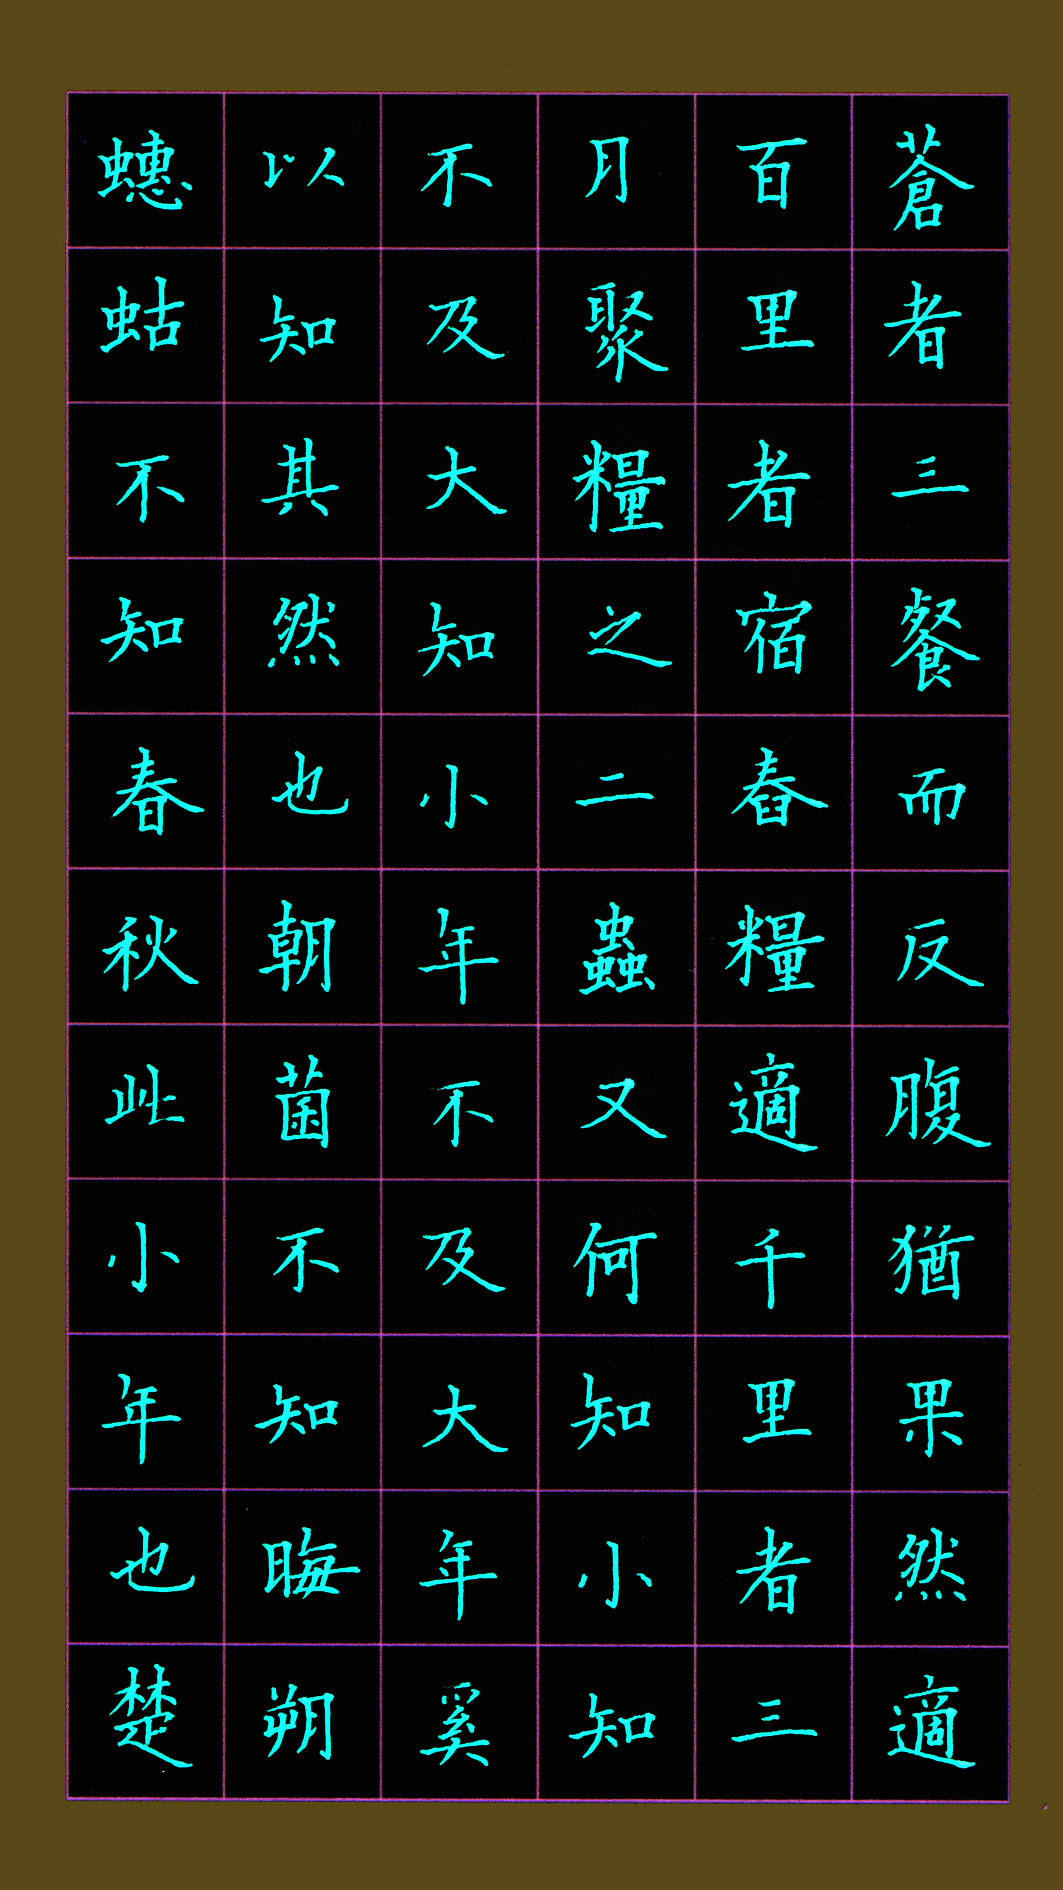 蒼者三餐而反腹猶果然適
百里者宿舂糧適千里者三
月聚糧之二蟲又何知小知
不及大知小年不及大年奚
以知其然也朝菌不知晦朔
蟪蛄不知春秋此小年也楚